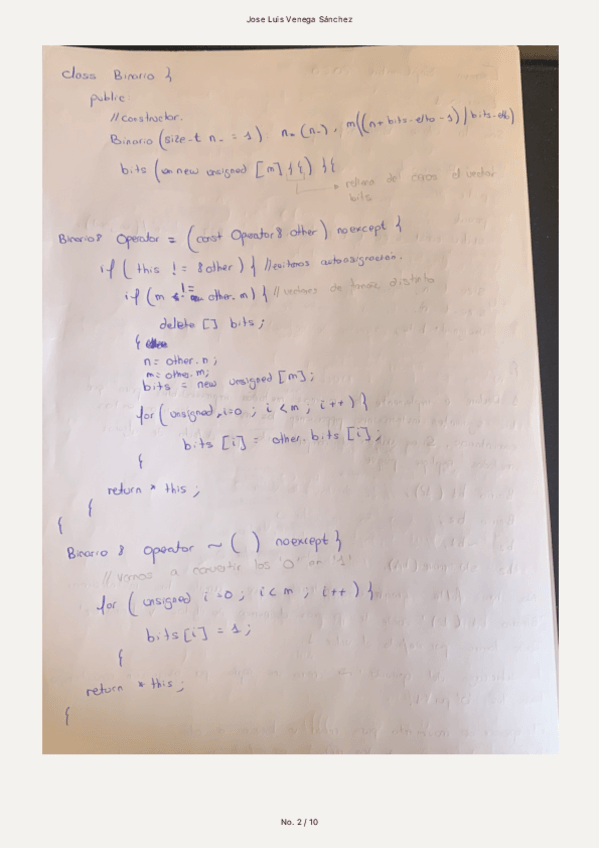 Jose Luis Venega Sánchez
class Binario }
public:
// constructor.
Binario (size-t n_ = 1) n_ (n_), m((n + bits-elto - 1) / bits-elto)
bits (new unsigned [m] }{) }{
→ rellena de ceros el vector
bits
Binario& Operator = (const Operator& other) noexcept }
if ( this != &other) } // evitamos autoasignación.
if (m != other.m) } // vectores de tamaño distinto
delete [] bits;
{
n = other.n;
m = other.m;
bits = new unsigned [m];
for (unsigned i=0 ; i < m ; i++) }
bits [i] = other.bits [i];
{
return * this ;
{
{
Binario & operator ~ ( ) noexcept }
// vamos a convertir los '0' en '1'
for ( unsigned i=0 ; i < m ; i++ ) }
bits [i] = 1 ;
{
return * this ;
{
No. 2 / 10